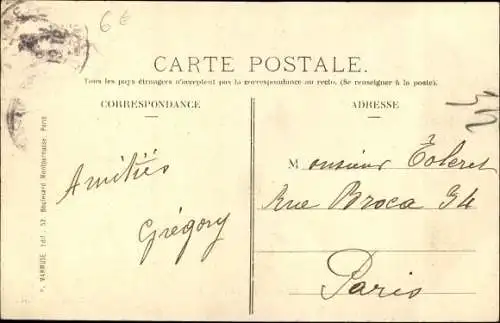 6€
CARTE POSTALE.
Tous les pays étrangers n'acceptent pas la correspondance au recto. (Se renseigner à la poste).
CORRESPONDANCE
ADRESSE
Amitiés
Grégory
Monsieur
Rue Broca 94
Paris
MARMUSE, Edit., 52, Boulevard Montparnasse, Paris